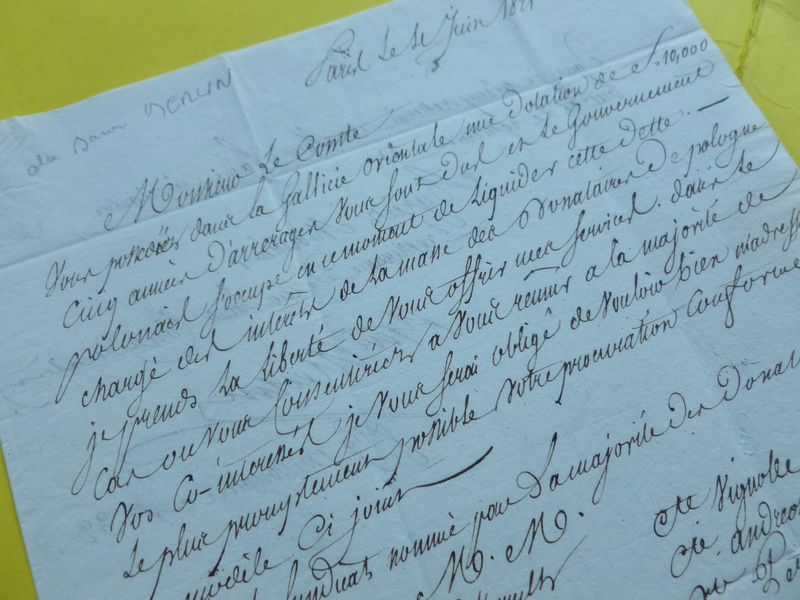 Paris Le 1er Juin 181
au Baron MERLIN
Monsieur Le Comte
Vous possédés dans la Gallicie orientale une dotation de f. 10,000
cinq années d'arrerages vous sont dues et Le Gouvernement
polonais s'occupe en ce moment de Liquider cette dette. —
chargé des interêts de La masse des Donataires de pologne
je prends La Liberté de vous offrir mes services. dans Le
cas ou vous consentiriés a vous reunir a la majorité de
vos co-interessés je vous serai obligé de vouloir bien m'adresser
Le plus promptement possible votre procuration conforme
modèle ci joint
Syndicat nommé par La majorité des Donat
M. M.
cte Vignolle
cte andreos